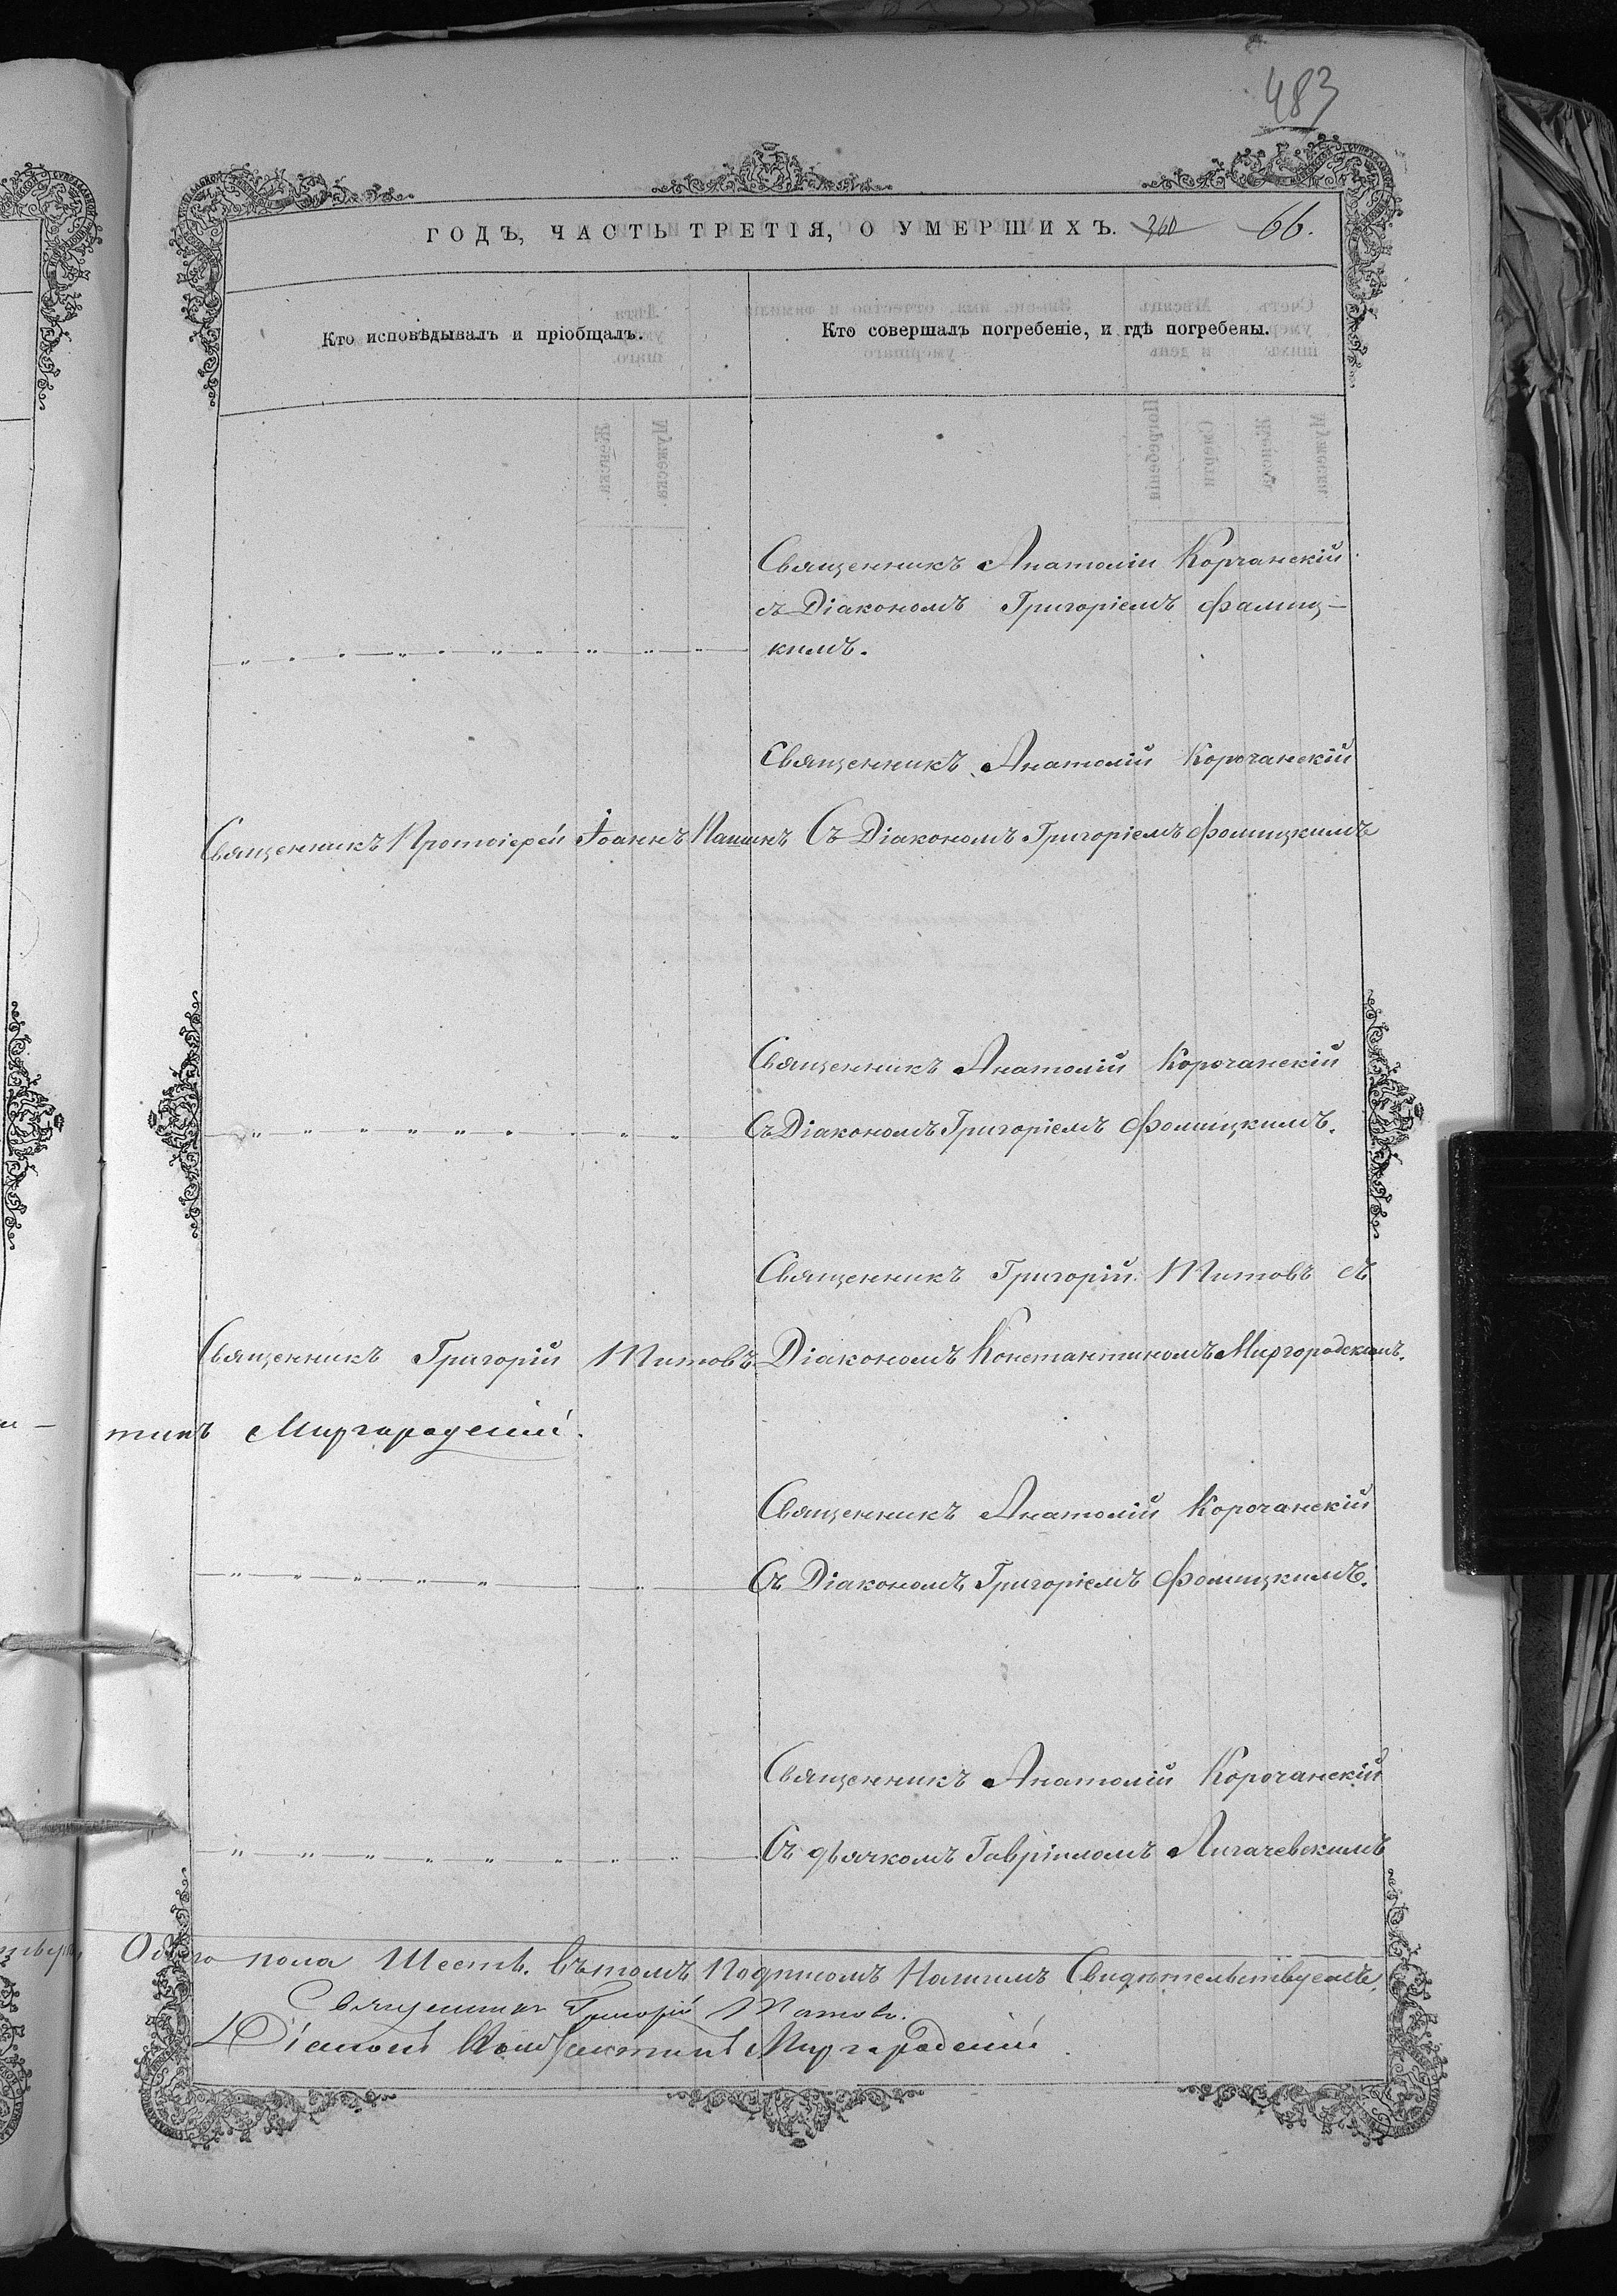 483
ГОДЪ, ЧАСТЬ ТРЕТІЯ, О УМЕРШИХЪ. 360 66.
Кто исповѣдывалъ и пріобщалъ.
Кто совершалъ погребеніе, и гдѣ погребены.
Священникъ Анатолій Корчанскій
съ Діакономъ Григоріемъ Фалиц-
кимъ.
Священникъ Анатолій Корочанскій
Священникъ Протоіерей Іоаннъ
Съ Діакономъ Григоріемъ Фолицкимъ
Священникъ Анатолій Корочанскій
Съ Діакономъ Григоріемъ Фолицкимъ.
Священникъ Григорій Титовъ съ
Священникъ Григорій Титовъ
Діакономъ Константиномъ Миргородскимъ.
тинъ Миргородскій.
Священникъ Анатолій Корочанскій
Съ Діакономъ Григоріемъ Фолицкимъ.
Священникъ Анатолій Корочанскій
Съ дьячкомъ Гавріиломъ Лигачевскимъ
Обоего пола Шесть. Въ томъ Подписомъ Нашимъ Свидѣтельствуемъ,
Священникъ Григорій Титовъ.
Діаконъ Константинъ Миргородскій.